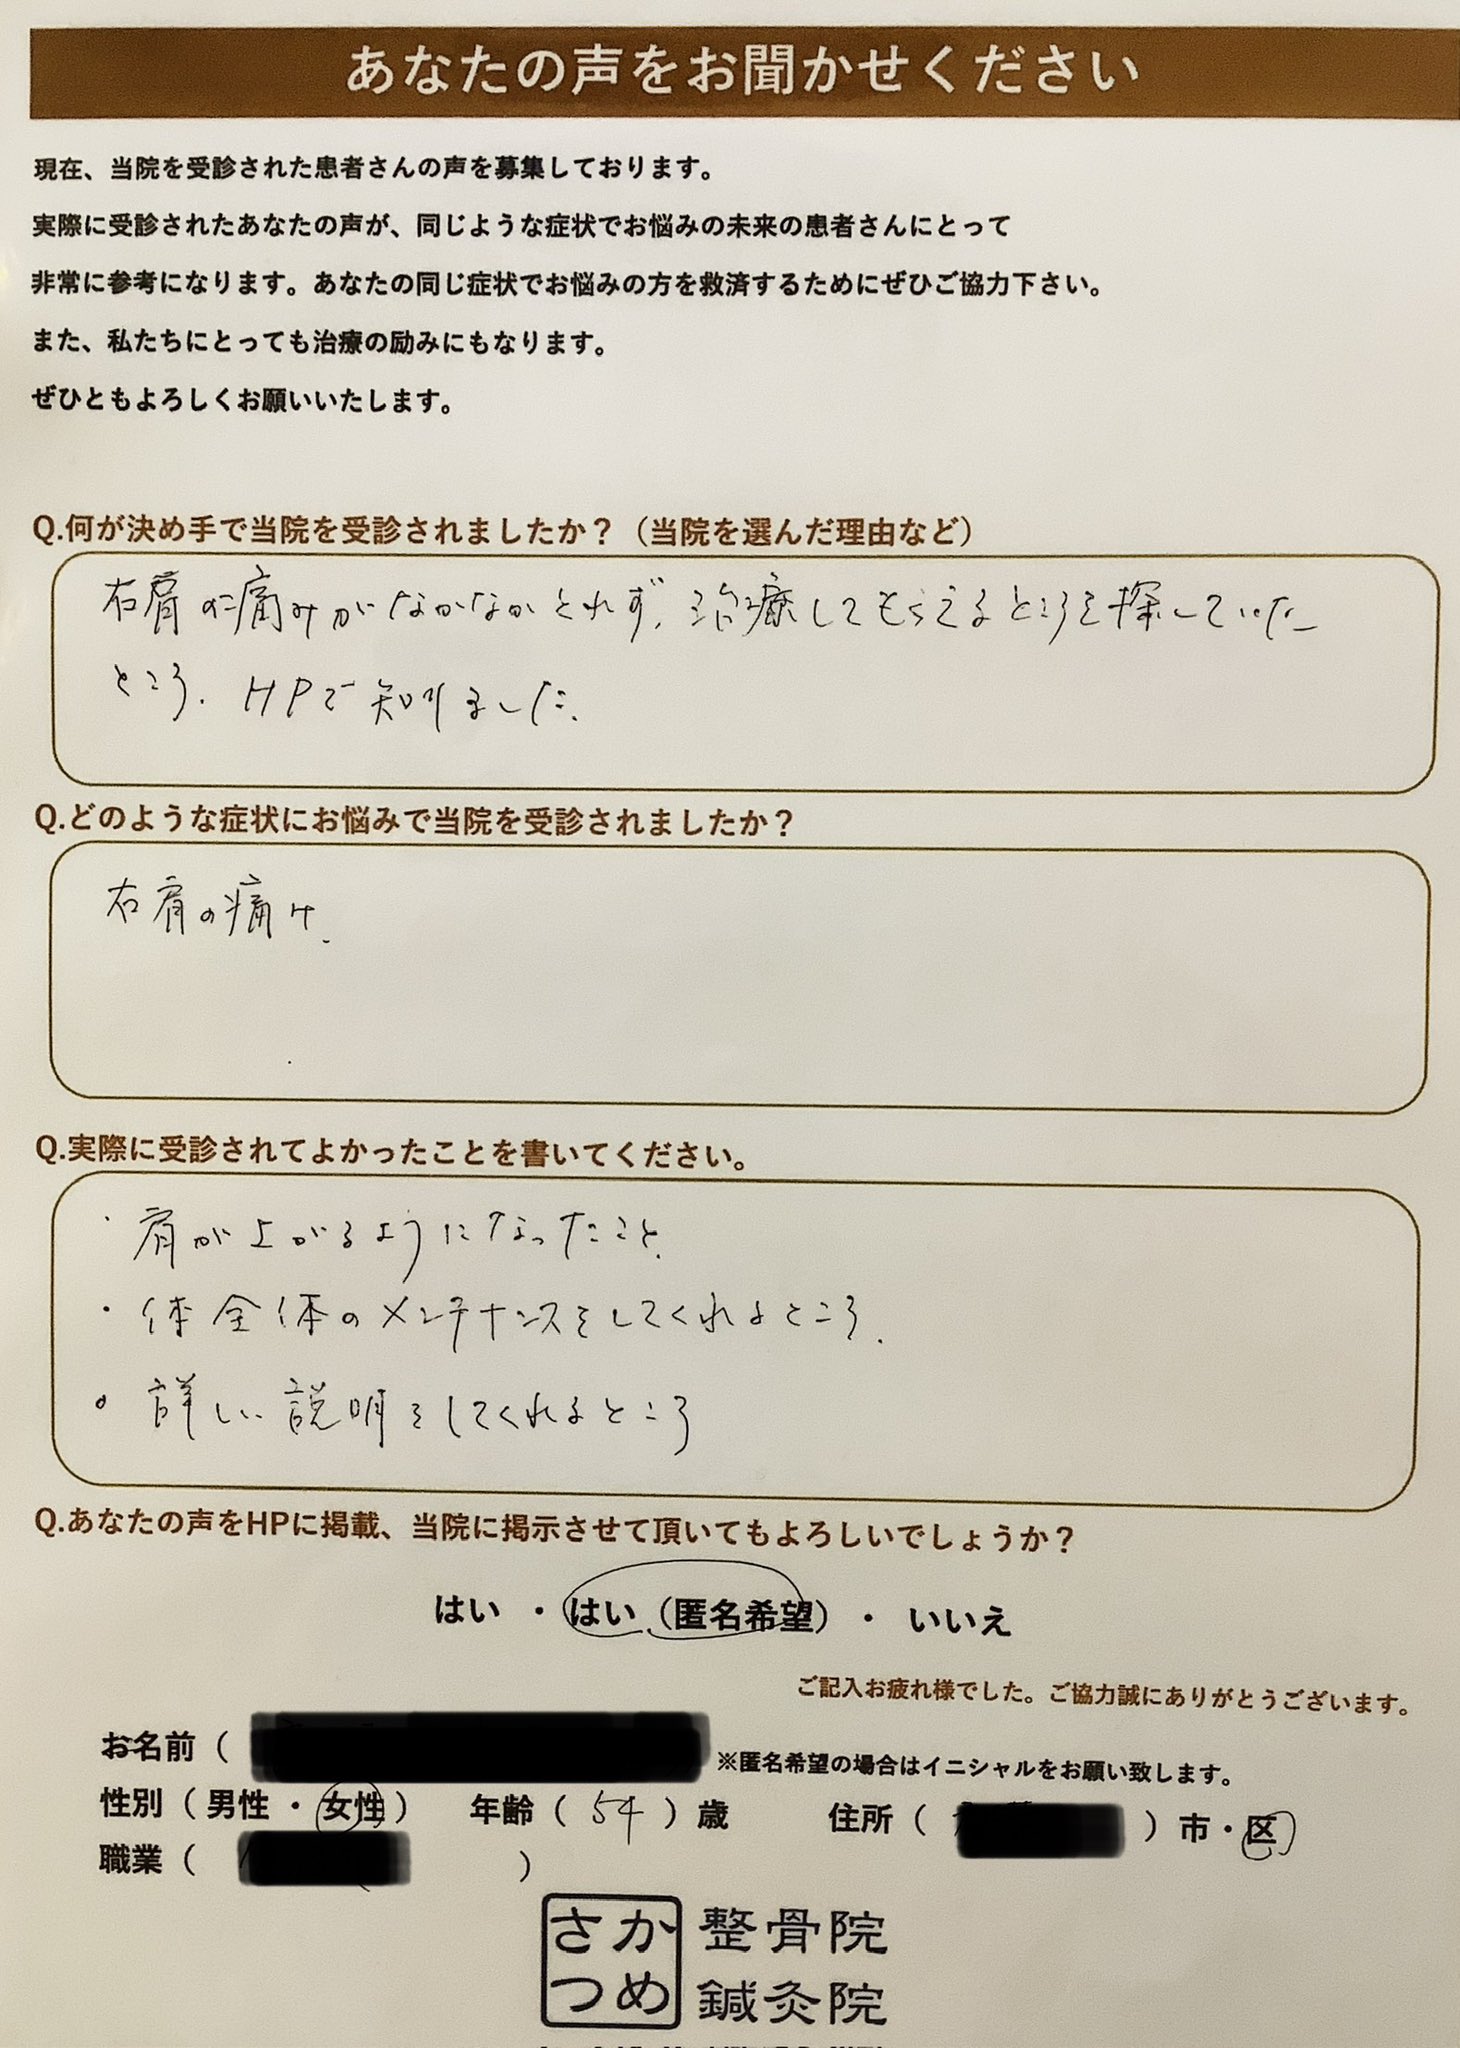 あなたの声をお聞かせください
現在、当院を受診された患者さんの声を募集しております。
実際に受診されたあなたの声が、同じような症状でお悩みの未来の患者さんにとって
非常に参考になります。あなたの同じ症状でお悩みの方を救済するためにぜひご協力下さい。
また、私たちにとっても治療の励みにもなります。
ぜひともよろしくお願いいたします。
Q.何が決め手で当院を受診されましたか？（当院を選んだ理由など）
右肩の痛みがなかなかとれず、治療してもらえるところを探していた
ところ、HPで知りました。
Q.どのような症状にお悩みで当院を受診されましたか？
右肩の痛み、
Q.実際に受診されてよかったことを書いてください。
・肩が上がるようになったこと、
・体全体のメンテナンスをしてくれるところ、
・詳しい説明をしてくれるところ
Q.あなたの声をHPに掲載、当院に掲示させて頂いてもよろしいでしょうか？
はい ・ はい（匿名希望）・ いいえ
ご記入お疲れ様でした。ご協力誠にありがとうございます。
お名前（ ※匿名希望の場合はイニシャルをお願い致します。
性別（男性 ・ 女性） 年齢（ 54 ）歳 住所（ ）市・区
職業（ ）
さかつめ 整骨院
鍼灸院